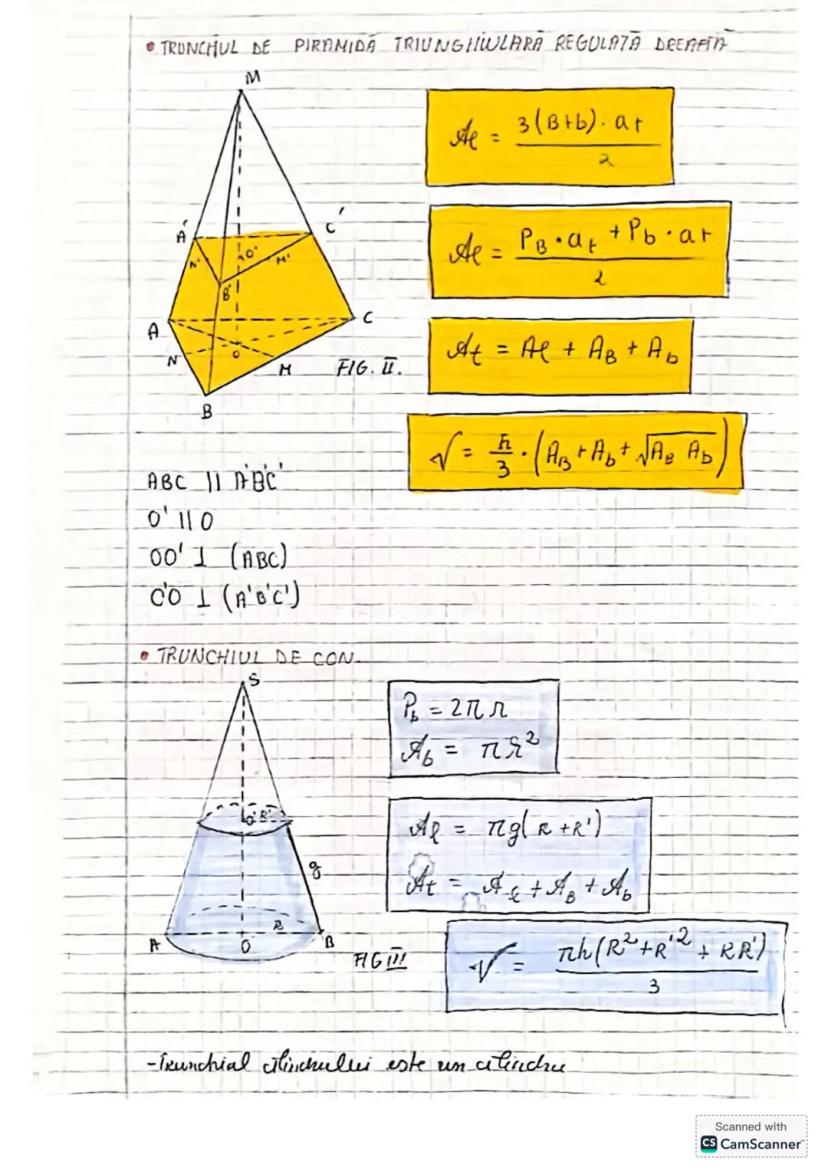 • TRUNCHUL DE PIRAMIDĂ TRIUNGHIULARĂ REGULATĂ DREAPTĂ
M
A' C'
O'
N' M'
B'
A C
N O M
B
FIG. II.
Al = 3(B+b)·at / 2
Al = PB·at + Pb·at / 2
At = Al + AB + Ab
V = h/3 · (AB + Ab + √AB Ab)
ABC || A'B'C'
O' || O
OO' ⊥ (ABC)
O'O ⊥ (A'B'C')
• TRUNCHIUL DE CON.
S
O' R'
g
R
A O B
FIG III
Pb = 2πr
Ab = πR²
Al = πg(R+R')
At = Al + AB + Ab
V = πh(R²+R'²+RR') / 3
-Trunchiul cilindrului este un cilindru
Scanned with
CS CamScanner